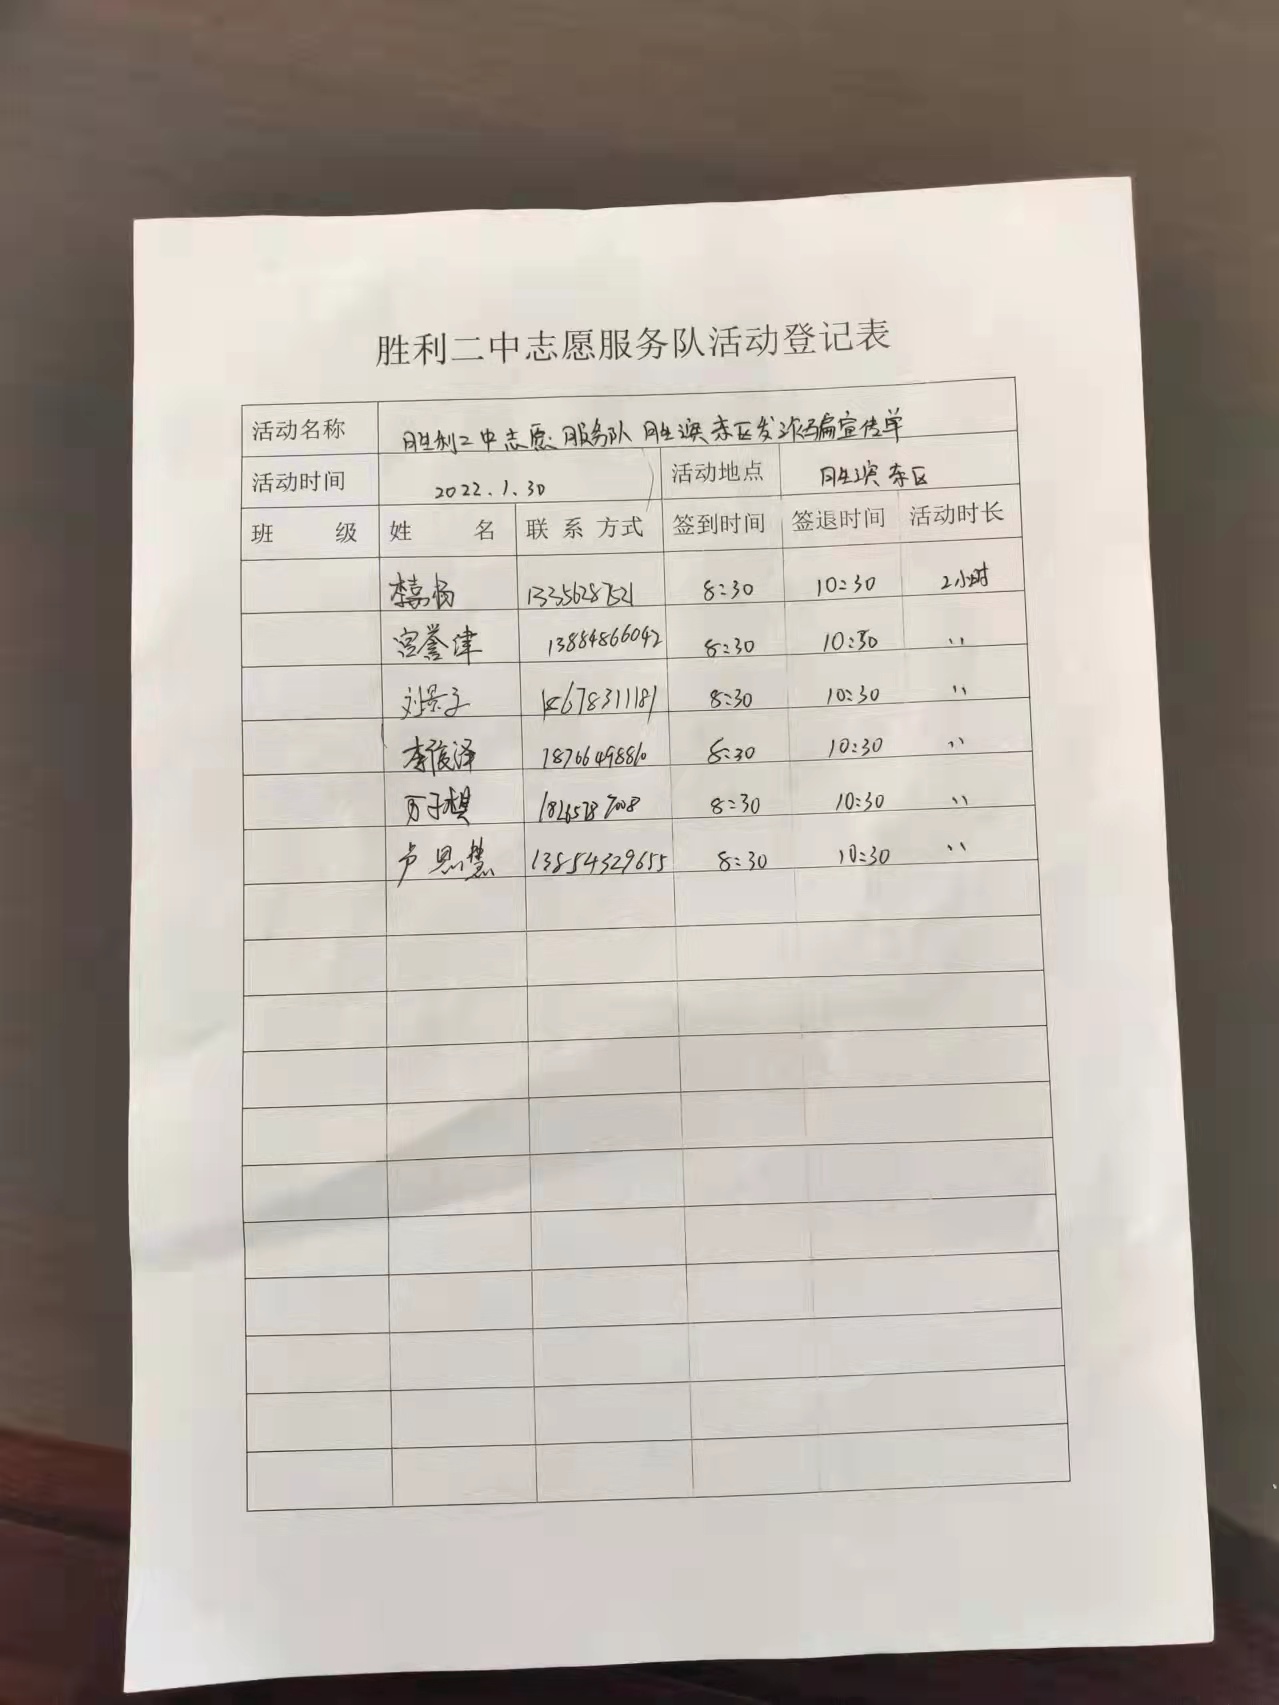 胜利二中志愿服务队活动登记表
活动名称 胜利二中志愿服务队胜滨东区发诈骗宣传单
活动时间 2022.1.30 活动地点 胜滨东区
班 级 姓 名 联系方式 签到时间 签退时间 活动时长
李嘉杨 13356287521 8:30 10:30 2小时
宫誉津 13884866042 8:30 10:30 〃
刘景子 8:30 10:30 〃
李俊泽 18766498810 8:30 10:30 〃
万子棋 8:30 10:30 〃
卢思慧 13854329655 8:30 10:30 〃